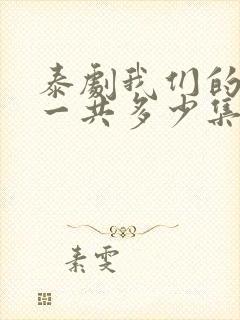 泰劇我们的
一共多少集
素雯